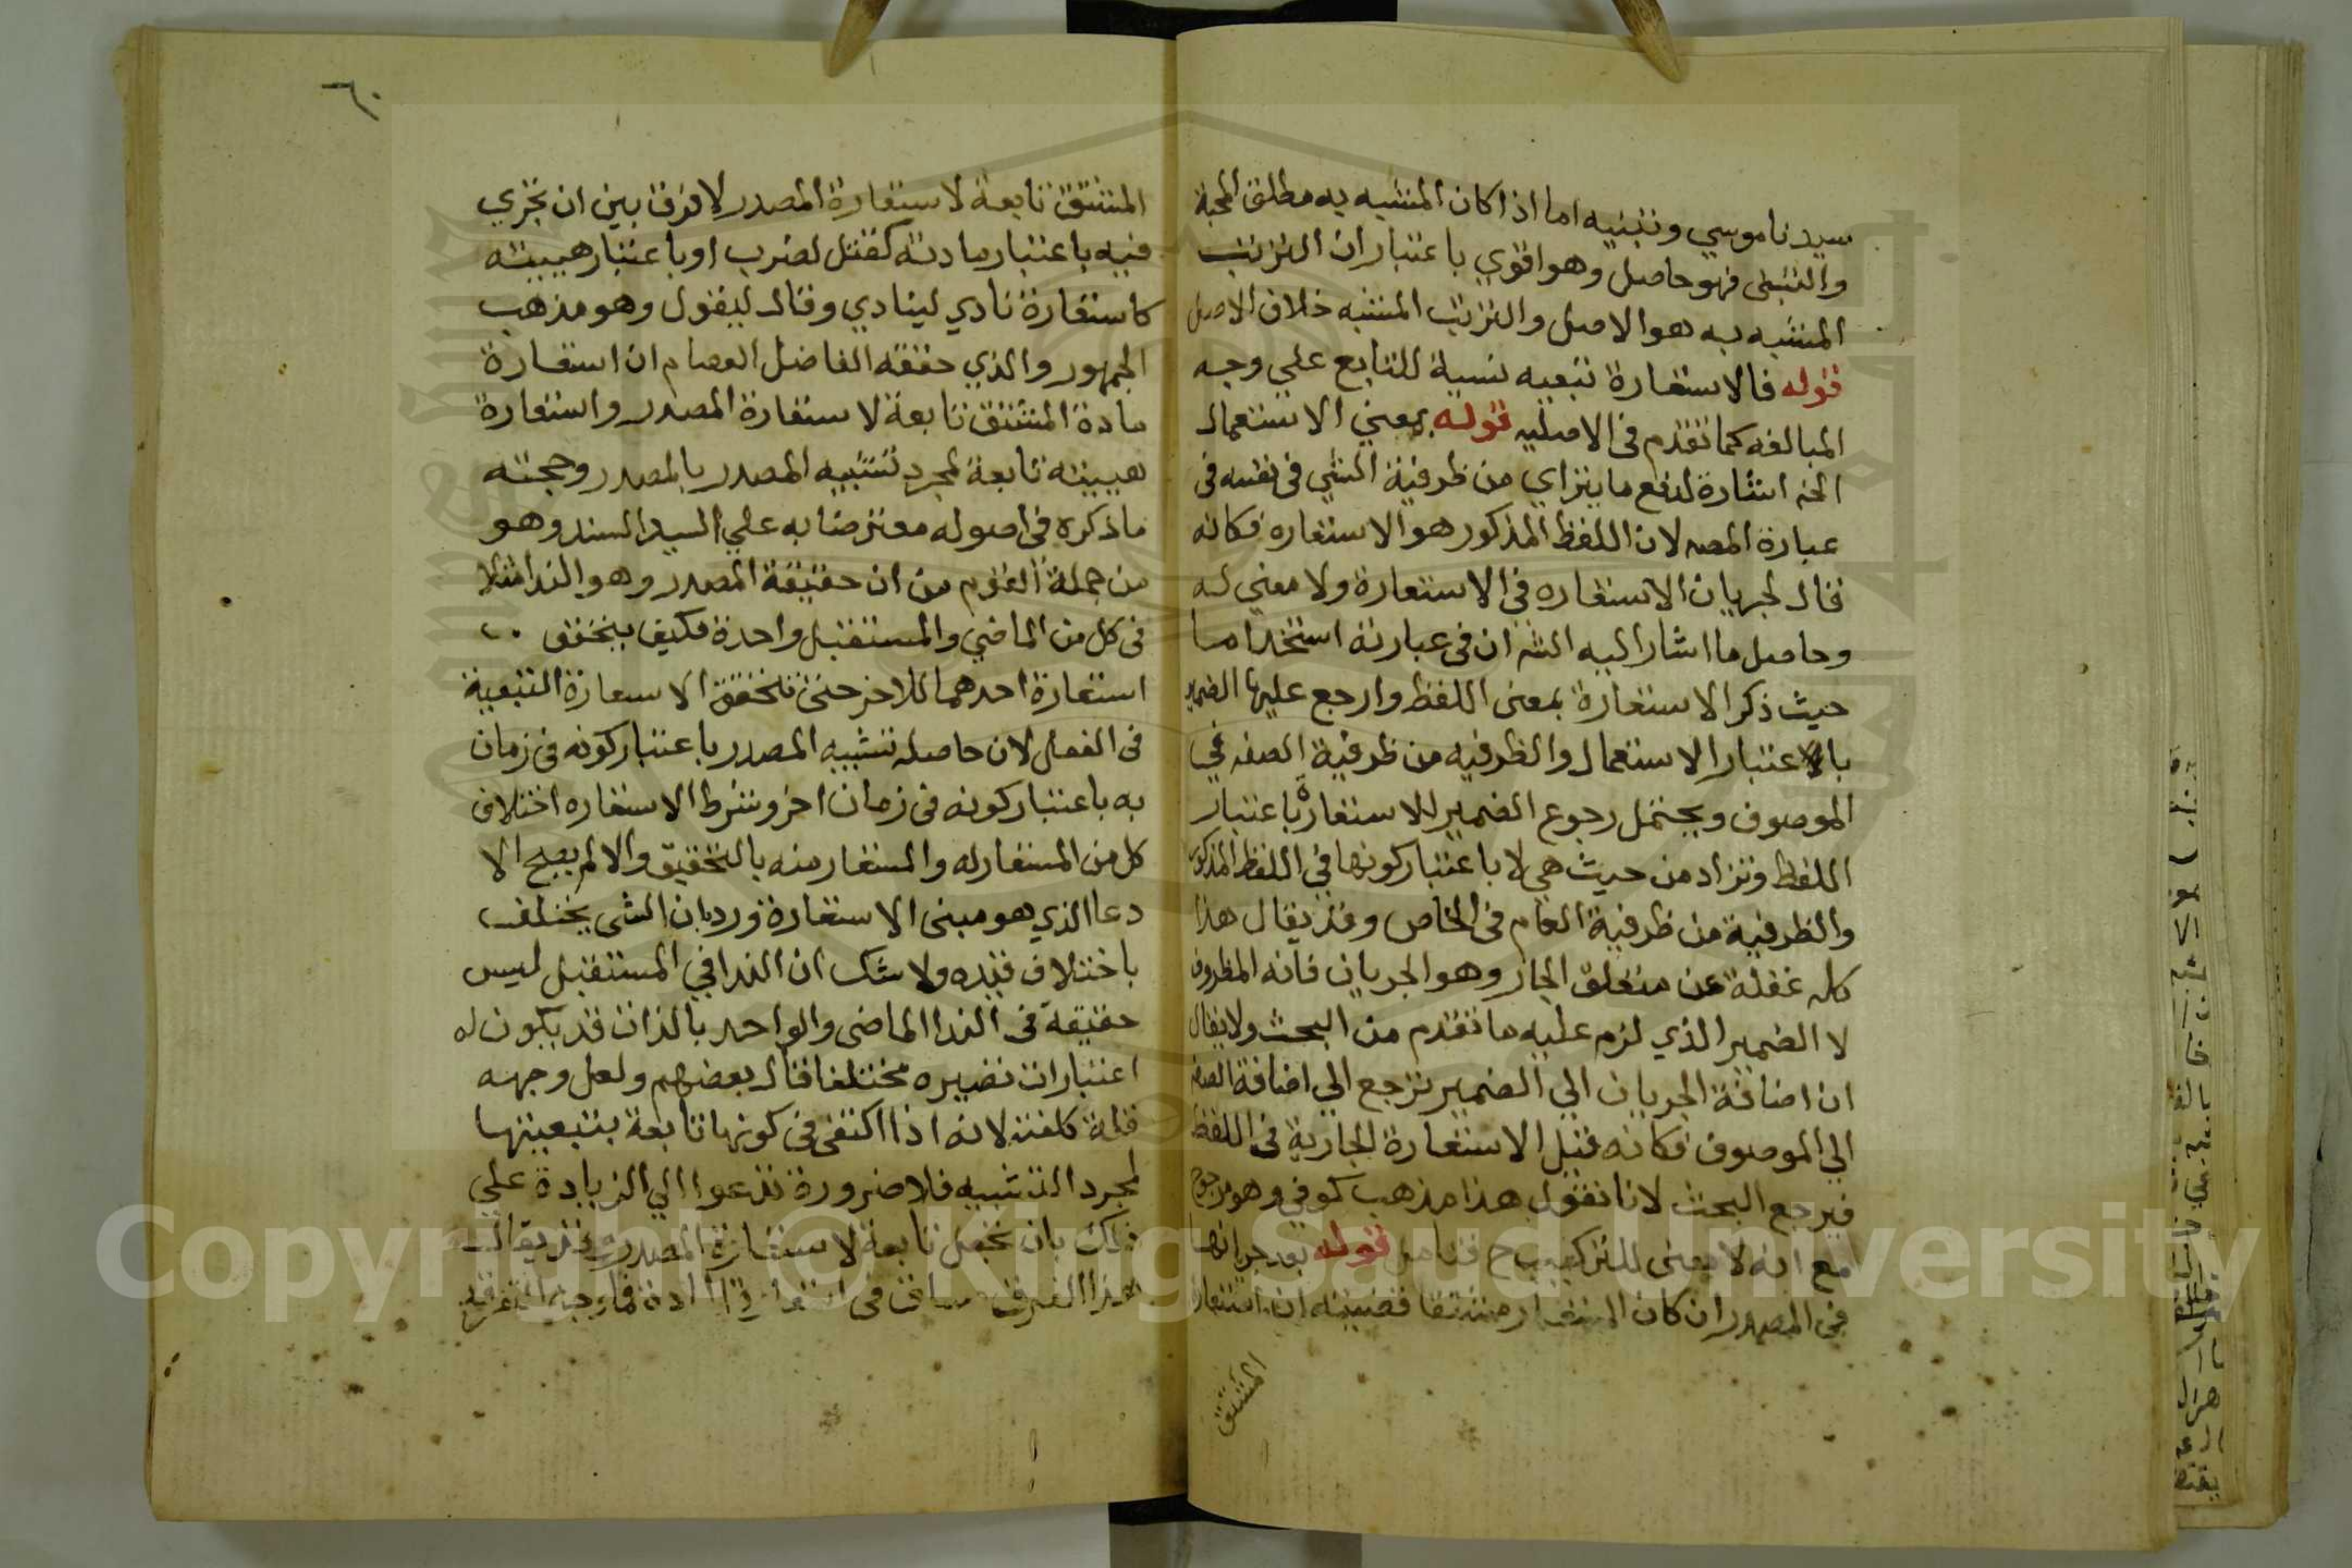 سيدنا موسي وتبنيه اما اذا كان المشبه به مطلق المحبة
والتبني فهو حاصل وهو اقوي باعتبار ان الترتب
المشبه به هو الاصل والترتب المشبه خلاف الاصل
قوله فالاستعارة تبعيه نسبة للتابع علي وجه
المبالغه كما تقدم في الاصليه قوله بمعني الاستعمال
الخ اشارة لدفع ما يتراي من ظرفية الشي في نفسه في
عبارة المصـ لان اللفظ المذكور هو الاستعاره فكانه
قال لجريان الاستعاره في الاستعارة ولا معني له
وحاصل ما اشار اليه الشـ ان في عبارته استخداما
حيث ذكر الاستعارة بمعنى اللفظ وارجع عليها الضمير
بالاعتبار الاستعمال والظرفيه من ظرفية الصفه في
الموصوف ويحتمل رجوع الضمير للاستعارة باعتبار
اللفظ وتراد من حيث هي لا باعتبار كونها في اللفظ المذكور
والظرفية من ظرفية العام في الخاص وقد يقال هذا
كله غفلة عن متعلق الجار وهو الجريان فانه المظروف
لا الضمير الذي لزم عليه ما تقدم من البحث ولا يقال
ان اضافة الجريان الي الضمير ترجع الي اضافة الصفه
الي الموصوف فكانه قيل الاستعارة الجارية في اللفظ
فيرجع البحث لانا نقول هذا مذهب كوفي وهو مرجوح
مع انه لا معنى للتركيب ح قوله بعد جريانها
في المصدر ان كان المستعار مشتقا قضيته ان استعارة
المشتق
٦٠
المشتق تابعة لاستعارة المصدر لا فرق بين ان تجري
فيه باعتبار مادته كقتل لضرب او باعتبار هييته
كاستعارة نادي لينادي وقال ليقول وهو مذهب
الجمهور والذي حققه الفاضل العصام ان استعارة
مادة المشتق تابعة لاستعارة المصدر واستعارة
هييته تابعة لمجرد تشبيه المصدر بالمصدر وحجته
ما ذكره في اصوله معترضا به علي السيد السند وهو
من جملة القوم من ان حقيقة المصدر وهو الندا مثلا
في كل من الماضي والمستقبل واحدة فكيف يتحقق
استعارة احدهما للاخر حتى تتحقق الاسعارة التبعية
في الفعل لان حاصله تشبيه المصدر باعتبار كونه في زمان
به باعتبار كونه في زمان اخر وشرط الاستعاره اختلاف
كل من المستعار له والمستعار منه بالتحقيق والا لم يصح الا
دعا الذي هو مبنى الاستعارة ورد بان الشي يختلف
باختلاف قيده ولا شك ان الندا في المستقبل ليس
حقيقة في الندا الماضي والواحد بالذات قد يكون له
اعتبارات تصيره مختلفا قال بعضهم ولعل وجهه
قلة كلفته لانه اذا اكتفي في كونها تابعة بتبعيتها
لمجرد التشبيه فلا ضرورة تدعوا الي الزيادة علي
ذلك بان تجعل تابعة لاستعارة المصدر قد يقال
هذا